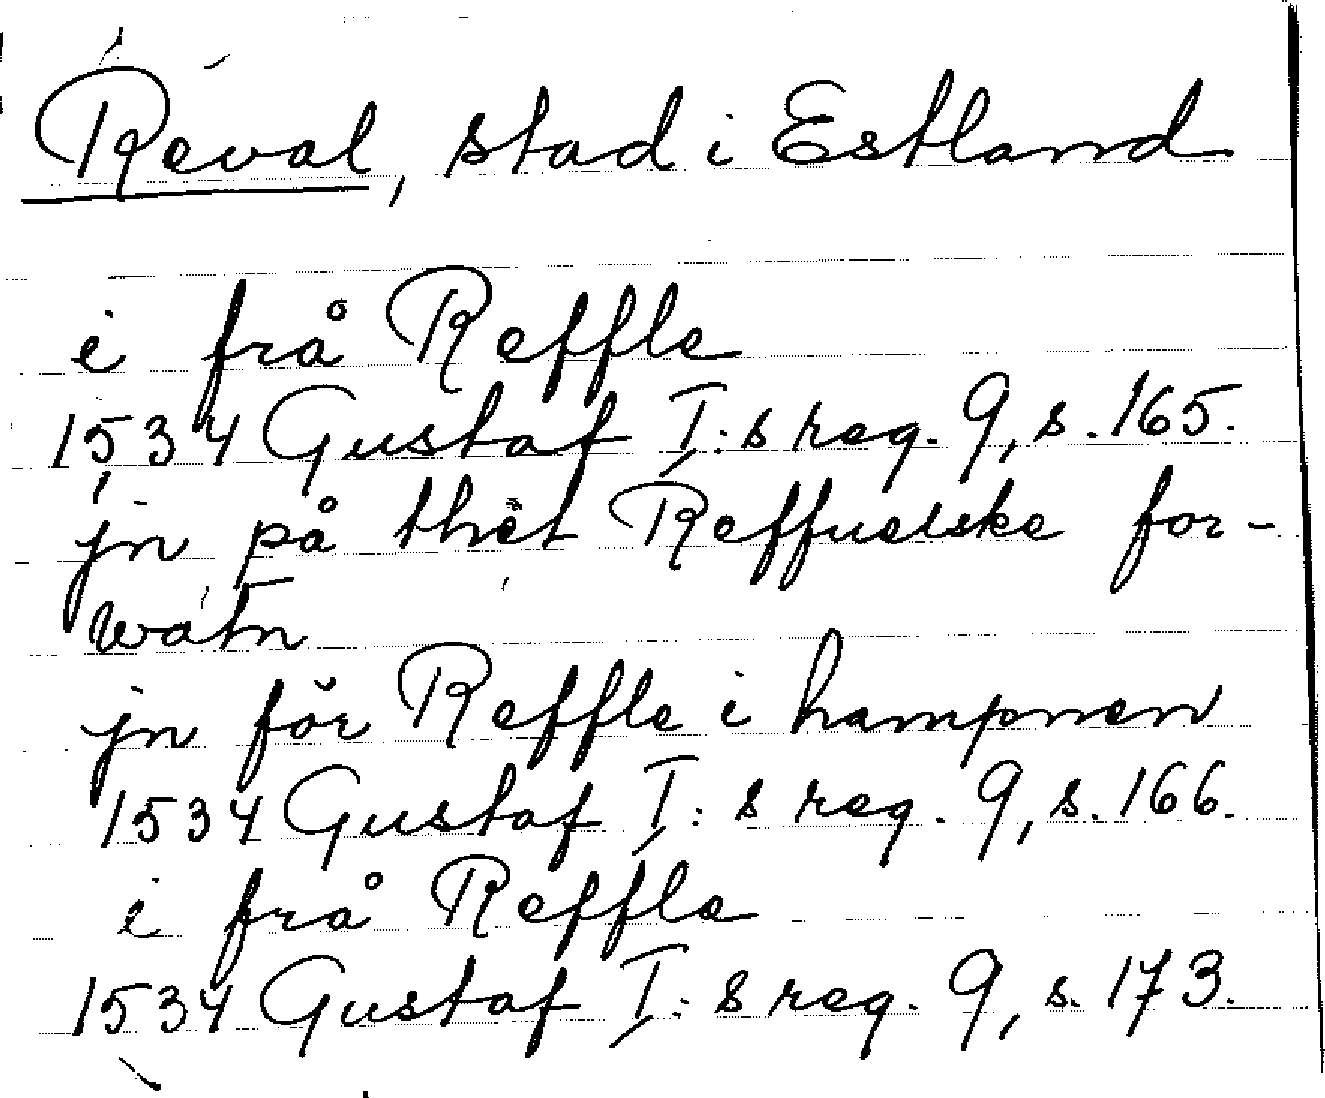 Reval, stad i Estland
i frå Reffle
1534 Gustaf I:s reg. 9, s. 165.
jn på thet Reffuelske for-
watn
jn för Reffle i hampnen
1534 Gustaf I:s reg. 9, s. 166.
i frå Reffle
1534 Gustaf I:s reg. 9, s. 173.